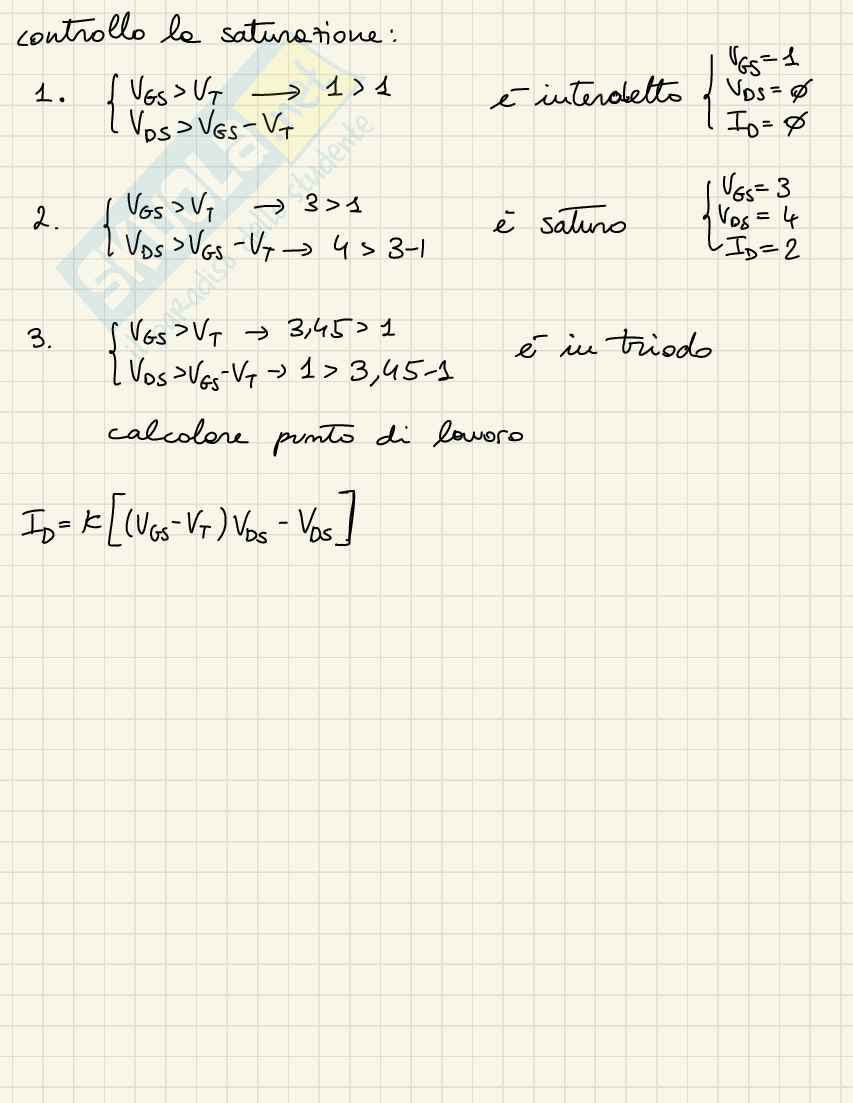 controllo la saturazione:
1. { V_GS > V_T → 1 > 1
V_DS > V_GS - V_T
è interdetto { V_GS = 1
V_DS = ∅
I_D = ∅
2. { V_GS > V_T → 3 > 1
V_DS > V_GS - V_T → 4 > 3-1
è saturo { V_GS = 3
V_DS = 4
I_D = 2
3. { V_GS > V_T → 3,45 > 1
V_DS > V_GS - V_T → 1 > 3,45-1
è in triodo
calcolare punto di lavoro
I_D = k[(V_GS - V_T) V_DS - V_DS]
SKUOLA.net
il paradiso dello studente